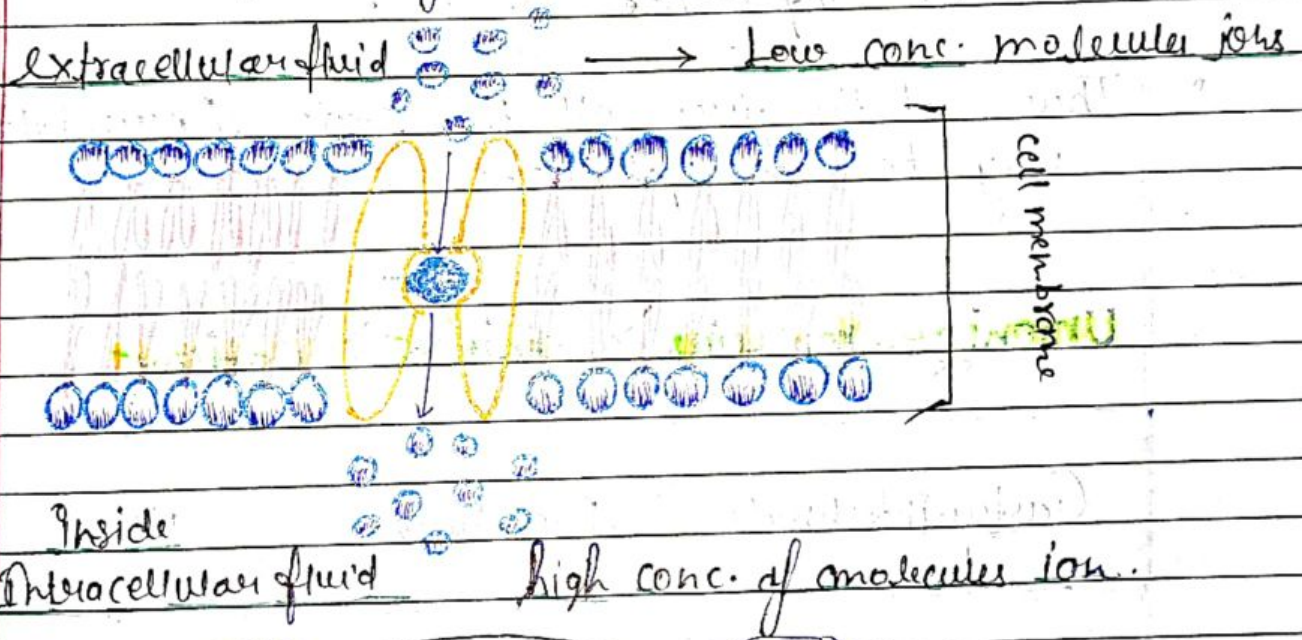 extracellular fluid → Low conc. molecules ions
cell membrane
Inside
Intracellular fluid high conc. of molecules ion.